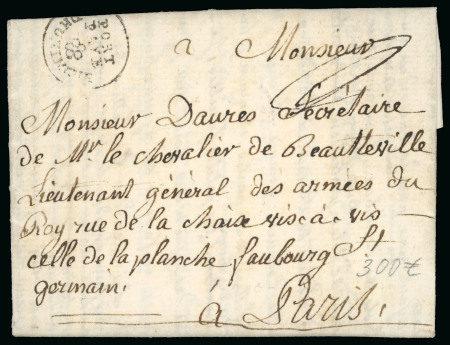 PORT
PAYÉ
à Monsieur
Monsieur Daures Secrétaire
de Mr. le chevalier de Beautteville
Lieutenant général des armées du
Roy rue de la chaise vis à vis
celle de la planche faubourg St
germain.
à Paris.
300€